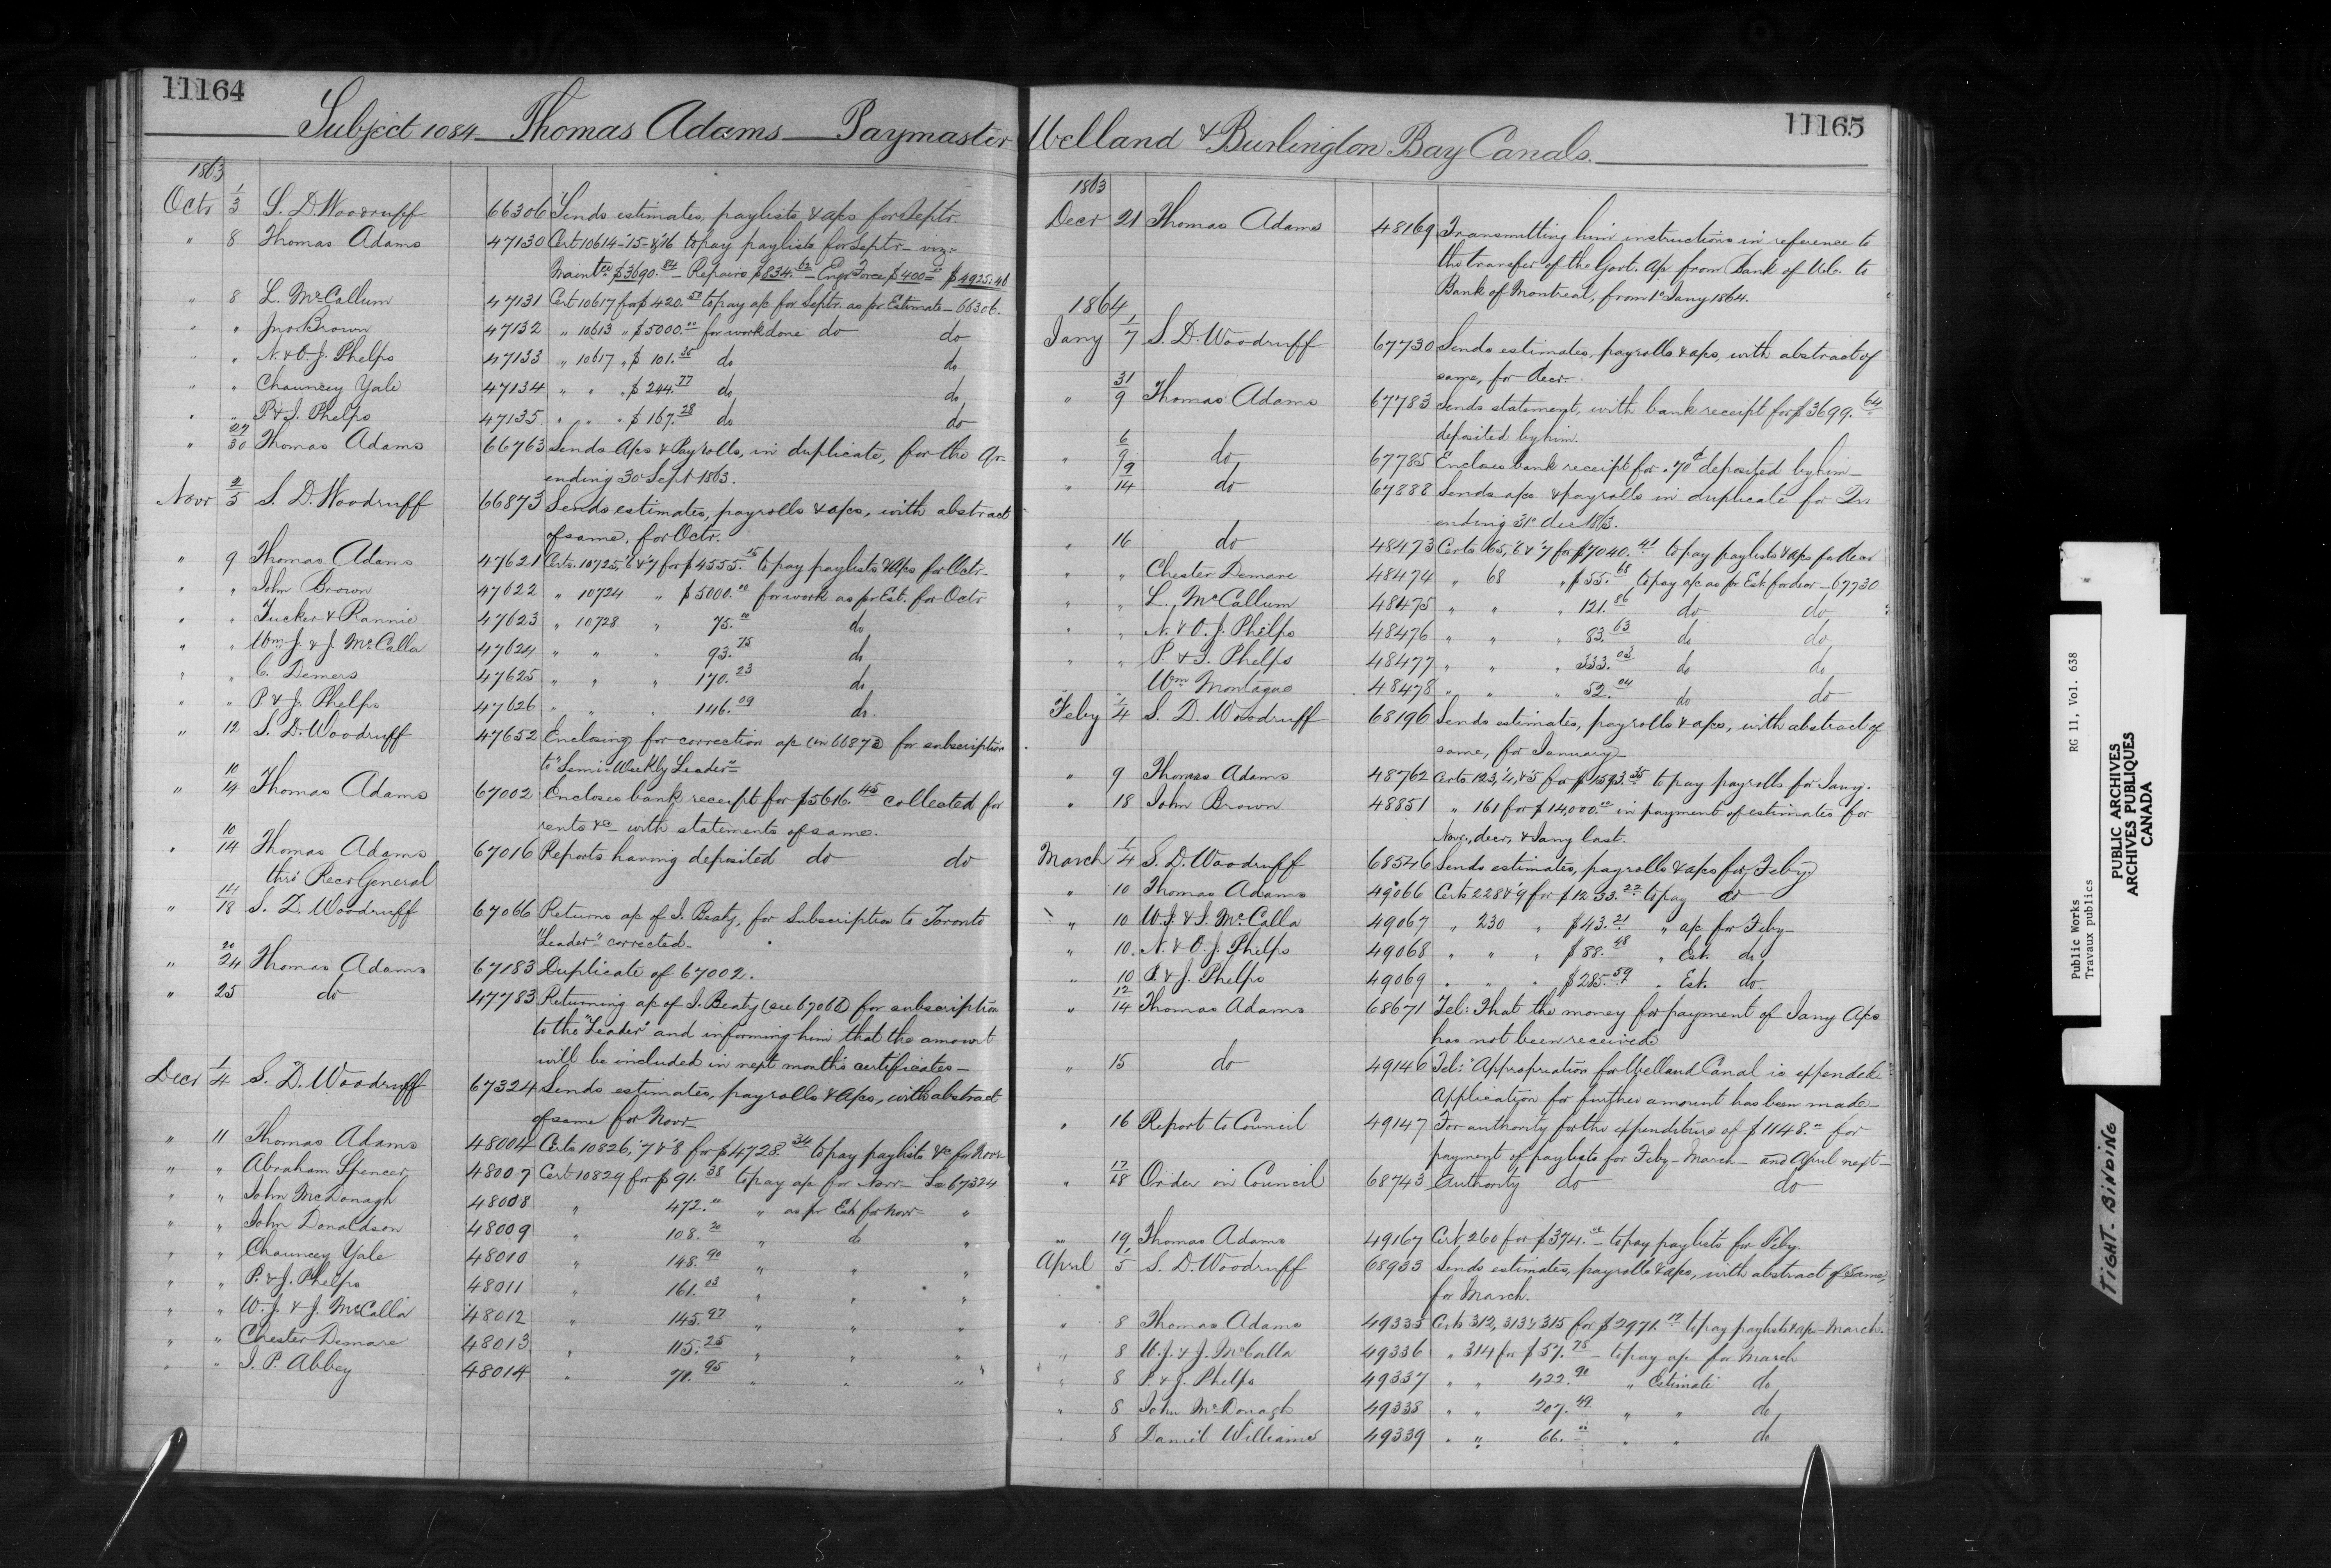 11164
Subject 1084 Thomas Adams Paymaster
1863
Octr 1/3 S. D. Woodruff 66306 Sends estimates, paylists, & a/cs for Septr.
" 8 Thomas Adams 47130 Cert 10614-'15-&'16 to pay paylists for Septr- viz-
Maintce $3690.84 Repairs $834.62 Engr Force $400.00 $4925.46
" 8 L. McCallum 47131 Cert 10617 for $420.50 to pay a/c for Septr. as pr Estimate - 66306.
" " Jno Brown 47132 " 10613 " $5000.00 for work done do do
" " N. & O. J. Phelps 47133 " 10617 " $ 101.38 do do
" " Chauncey Yale 47134 " " " $ 244.77 do do
" " P. & J. Phelps 47135 " " " $ 167.28 do do
" 27/30 Thomas Adams 66763 Sends A/cs & Payrolls, in duplicate, for the Qr
ending 30 Sept 1863.
Novr 2/5 S. D. Woodruff 66873 Sends estimates, payrolls & a/cs, with abstract
of same, for Octr.
" 9 Thomas Adams 47621 Certs. 10725, '6 & '7 for $4555.15 to pay paylists & a/cs for Octr-
" " John Brown 47622 " 10724 " $5000.00 for work as pr Est. for Octr
" " Tucker & Rannie 47623 " 10728 " 75.00 do
" " Wm. J. & J. McCalla 47624 " " " 93.75 do
" " C. Demers 47625 " " " 170.23 do
" " P. & J. Phelps 47626 " " " 146.09 do.
" 12 S. D. Woodruff 47652 Enclosing for correction a/c (in 66873) for subscription
to "Semi-Weekly Leader"
" 10/14 Thomas Adams 67002 Encloses bank receipt for $5616.45 collected for
rents &c- with statements of same.
" 10/14 Thomas Adams 67016 Reports having deposited do do
thro' Recr General
" 14/18 S. D. Woodruff 67066 Returns a/c of J. Beaty, for Subscription to Toronto
"Leader" corrected-
" 20/24 Thomas Adams 67183 Duplicate of 67002.
" 25 do 47783 Returning a/c of J. Beaty (see 67066) for subscription
to the "Leader" and informing him that the amount
will be included in next month's certificates-
Decr 1/4 S. D. Woodruff 67324 Sends estimates, payrolls & a/cs, with abstract
of same for Novr-
" 11 Thomas Adams 48004 Certs 10826, '7 & '8 for $4728.34 to pay paylists &c for Novr
" " Abraham Spencer 48007 Cert 10829 for $ 91.38 to pay a/c for Novr- See 67324
" " John McDonagh 48008 " 472.00 " as pr Est. for Novr- "
" " John Donaldson 48009 " 108.20 " do "
" " Chauncey Yale 48010 " 148.90 " " "
" " P. & J. Phelps 48011 " 161.03 " " "
" " W. J. & J. McCalla 48012 " 145.97 " " "
" " Chester Demare 48013 " 115.25 " " "
" " J. P. Abbey 48014 " 71.95 " " "
11165
Welland & Burlington Bay Canals.
1863
Decr 21 Thomas Adams 48169 Transmitting him instructions in reference to
the transfer of the Govt. a/c from Bank of U.C. to
Bank of Montreal, from 1st Jany 1864.
1864
Jany 1/7 S. D. Woodruff 67730 Sends estimates, payrolls & a/cs, with abstract of
same, for Decr.
" 31/9 Thomas Adams 67783 Sends statement, with bank receipt for $3699.64
deposited by him.
" 6/9 do 67785 Encloses bank receipt for .70c deposited by him-
" 9/14 do 67888 Sends a/cs & payrolls in duplicate for Qr
ending 31st Dec 1863.
" 16 do 48473 Certs 65, '6 & '7 for $7040.41 to pay paylists & a/cs for Decr
" " Chester Demare 48474 " 68 " $ 55.68 to pay a/c as pr Est. for Decr - 67730
" " L. McCallum 48475 " " " 121.86 do do
" " N. & O. J. Phelps 48476 " " " 83.63 do do
" " P. & J. Phelps 48477 " " " 333.03 do do
" " Wm Montague 48478 " " " 52.04 do do
Feby 1/4 S. D. Woodruff 68196 Sends estimates, payrolls & a/cs, with abstract of
same, for January
" 9 Thomas Adams 48762 Certs 123, '4, & '5 for $1593.35 to pay payrolls for Jany.
" 18 John Brown 48851 " 161 for $14,000.00 in payment of estimates for
Novr, Decr, & Jany last.
March 1/4 S. D. Woodruff 68546 Sends estimates, payrolls & a/cs for Feby
" 10 Thomas Adams 49066 Certs 228 & '9 for $1233.22 to pay do
" 10 W. J. & J. McCalla 49067 " 230 " $43.21 " a/c for Feby-
" 10. N. & O. J. Phelps 49068 " " " $ 88.48 " Est. do
" 10 P. & J. Phelps 49069 " " " $285.59 " Est. do
" 12/14 Thomas Adams 68671 Tel: That the money for payment of Jany A/cs
has not been received
" 15 do 49146 Tel: "Appropriation for Welland Canal is expended.
Application for further amount has been made-
" 16 Report to Council 49147 For authority for the expenditure of $1148.00 for
payment of paylists for Feby- March- and April next-
" 17/18 Order in Council 68743 Authority do do
" 19 Thomas Adams 49167 Cert 260 for $374.00 to pay paylists for Feby.
April 1/5 S. D. Woodruff 68933 Sends estimates, payrolls & a/cs, with abstract of same,
for March.
" 8 Thomas Adams 49335 Certs 312, 313 & 315 for $2971.17 to pay paylists & a/cs - March.
" 8 W. J. & J. McCalla 49336 " 314 for $57.75 to pay a/c for March
" 8 P. & J. Phelps 49337 " " 422.90 " Estimate do
" 8 John McDonagh 49338 " " 207.49 " " do
" 8 Daniel Williams 49339 " " 66.00 " " do
Public Works RG 11, Vol. 638
Travaux publics
PUBLIC ARCHIVES
ARCHIVES PUBLIQUES
CANADA
TIGHT BINDING